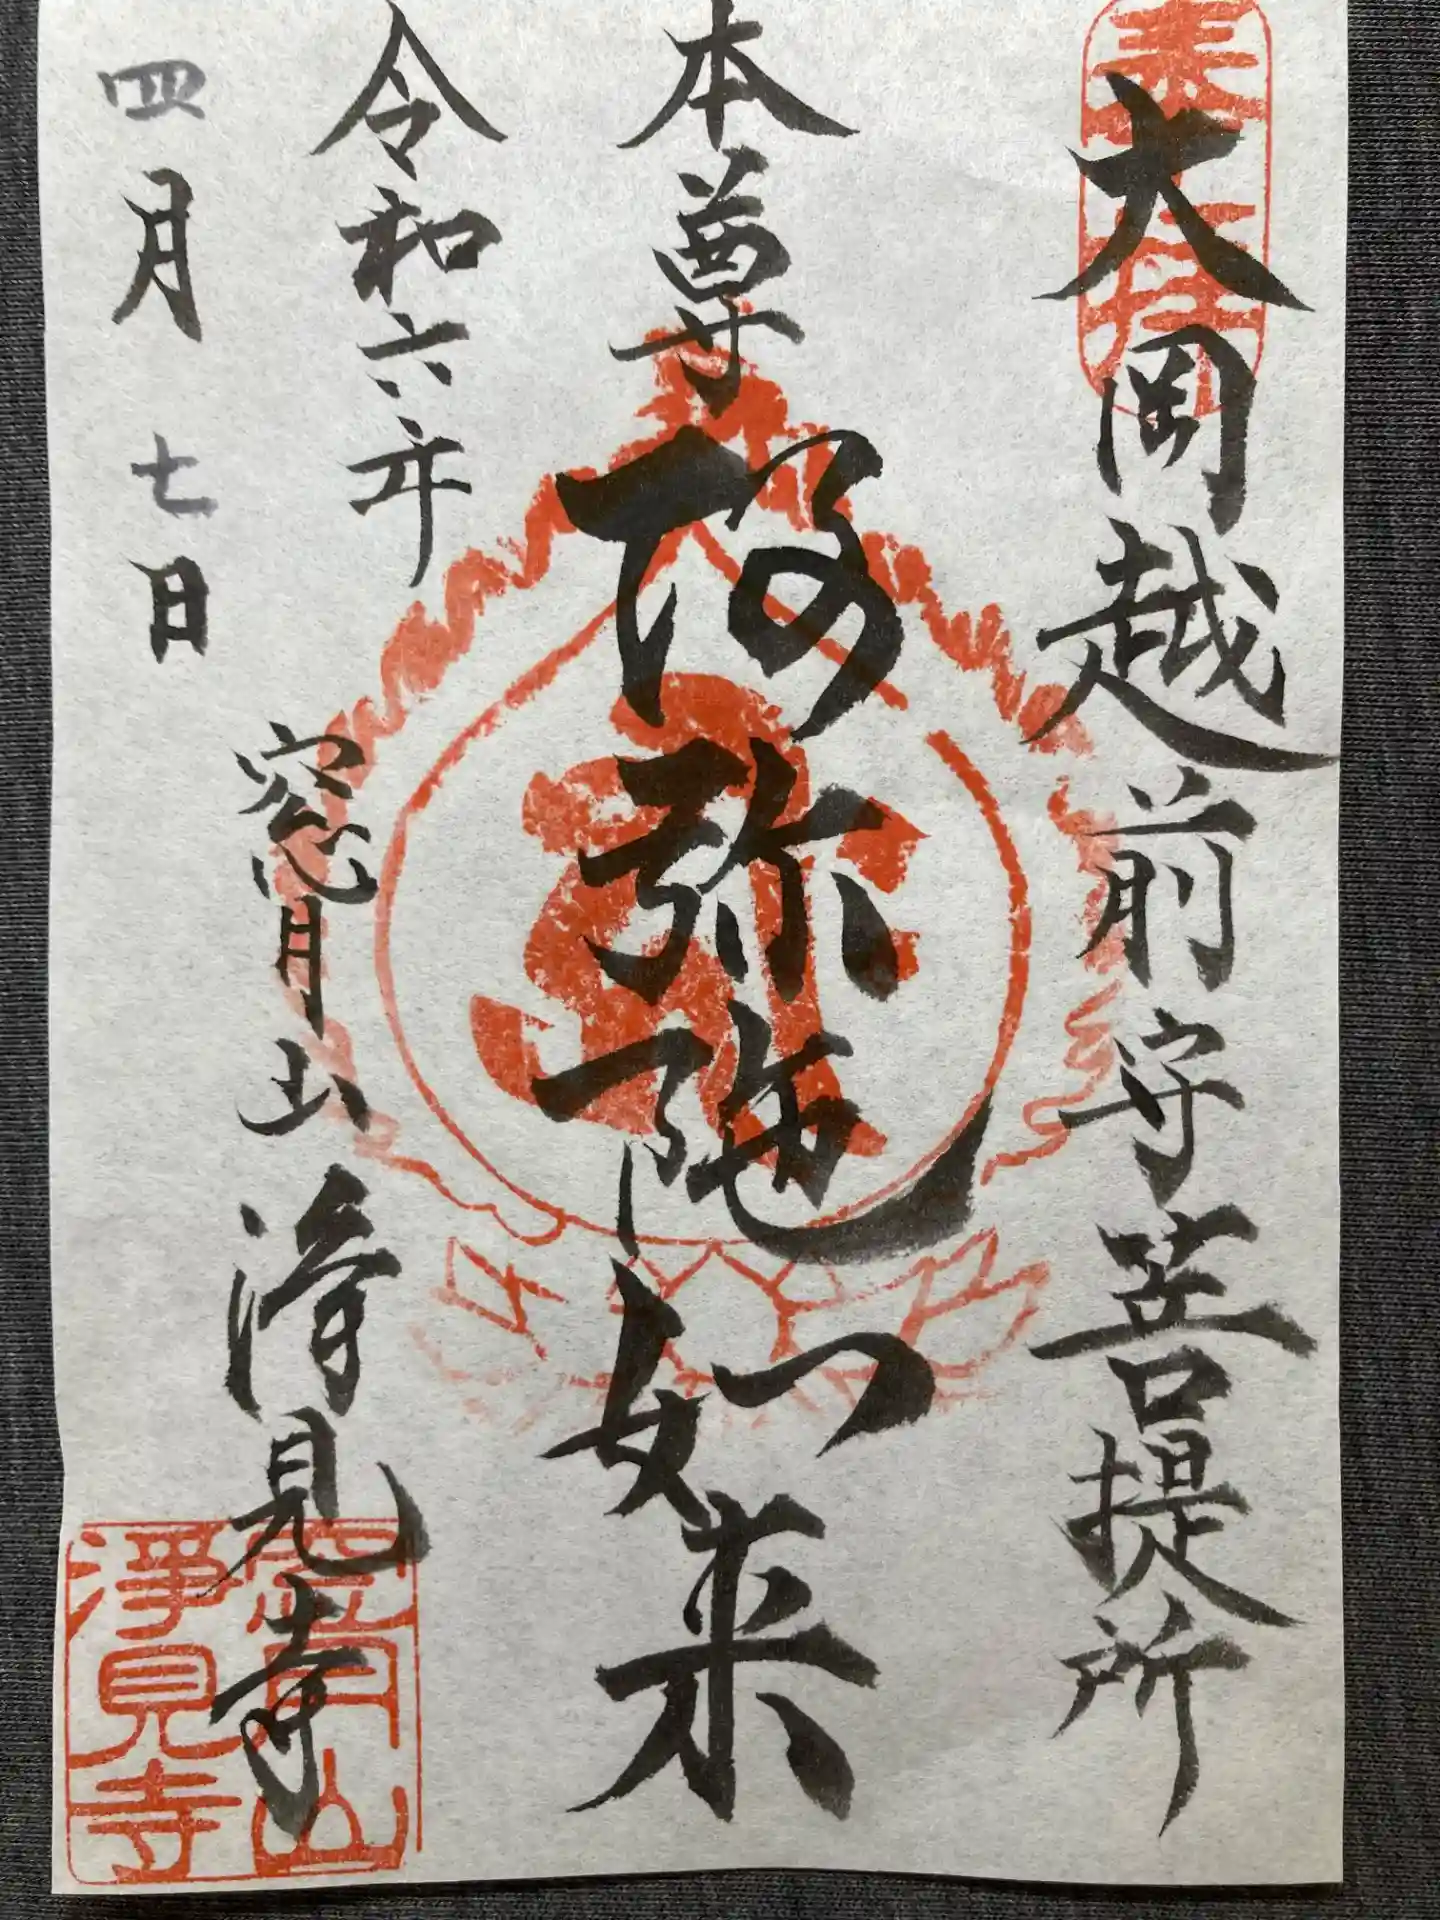 奉拝
大岡越前守菩提所
本尊阿弥陀如来
令和六年
四月七日
窓月山浄見寺
窓月山
淨見寺